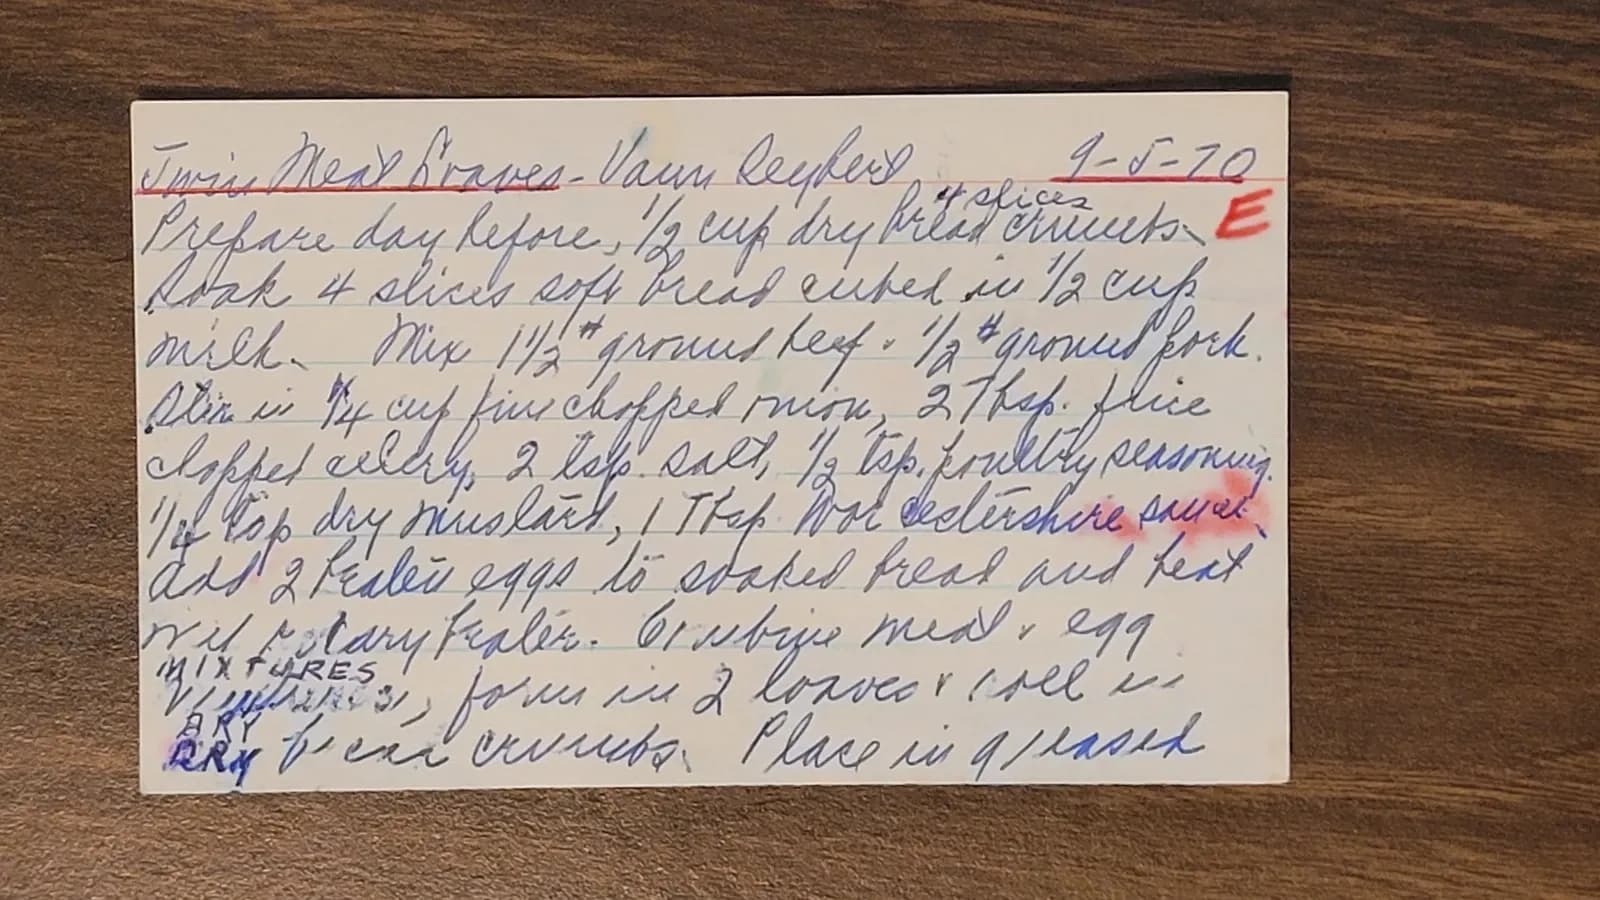 Twin Meat Loaves - Vaun Seybert 9-5-70
4 slices
Prepare day before, 1/2 cup dry bread crumbs. E
Soak 4 slices soft bread cubed in 1/2 cup
milk. Mix 1 1/2 # ground beef & 1/2 # ground pork.
Stir in 1/4 cup fine chopped onion, 2 Tbsp. fine
chopped celery, 2 tsp. salt, 1/2 tsp. poultry seasoning.
1/4 tsp dry mustard, 1 Tbsp Worcestershire sauce.
Add 2 beaten eggs to soaked bread and beat
with rotary beater. Combine meat & egg
MIXTURES
, form in 2 loaves & roll in
DRY
DRY bread crumbs. Place in greased